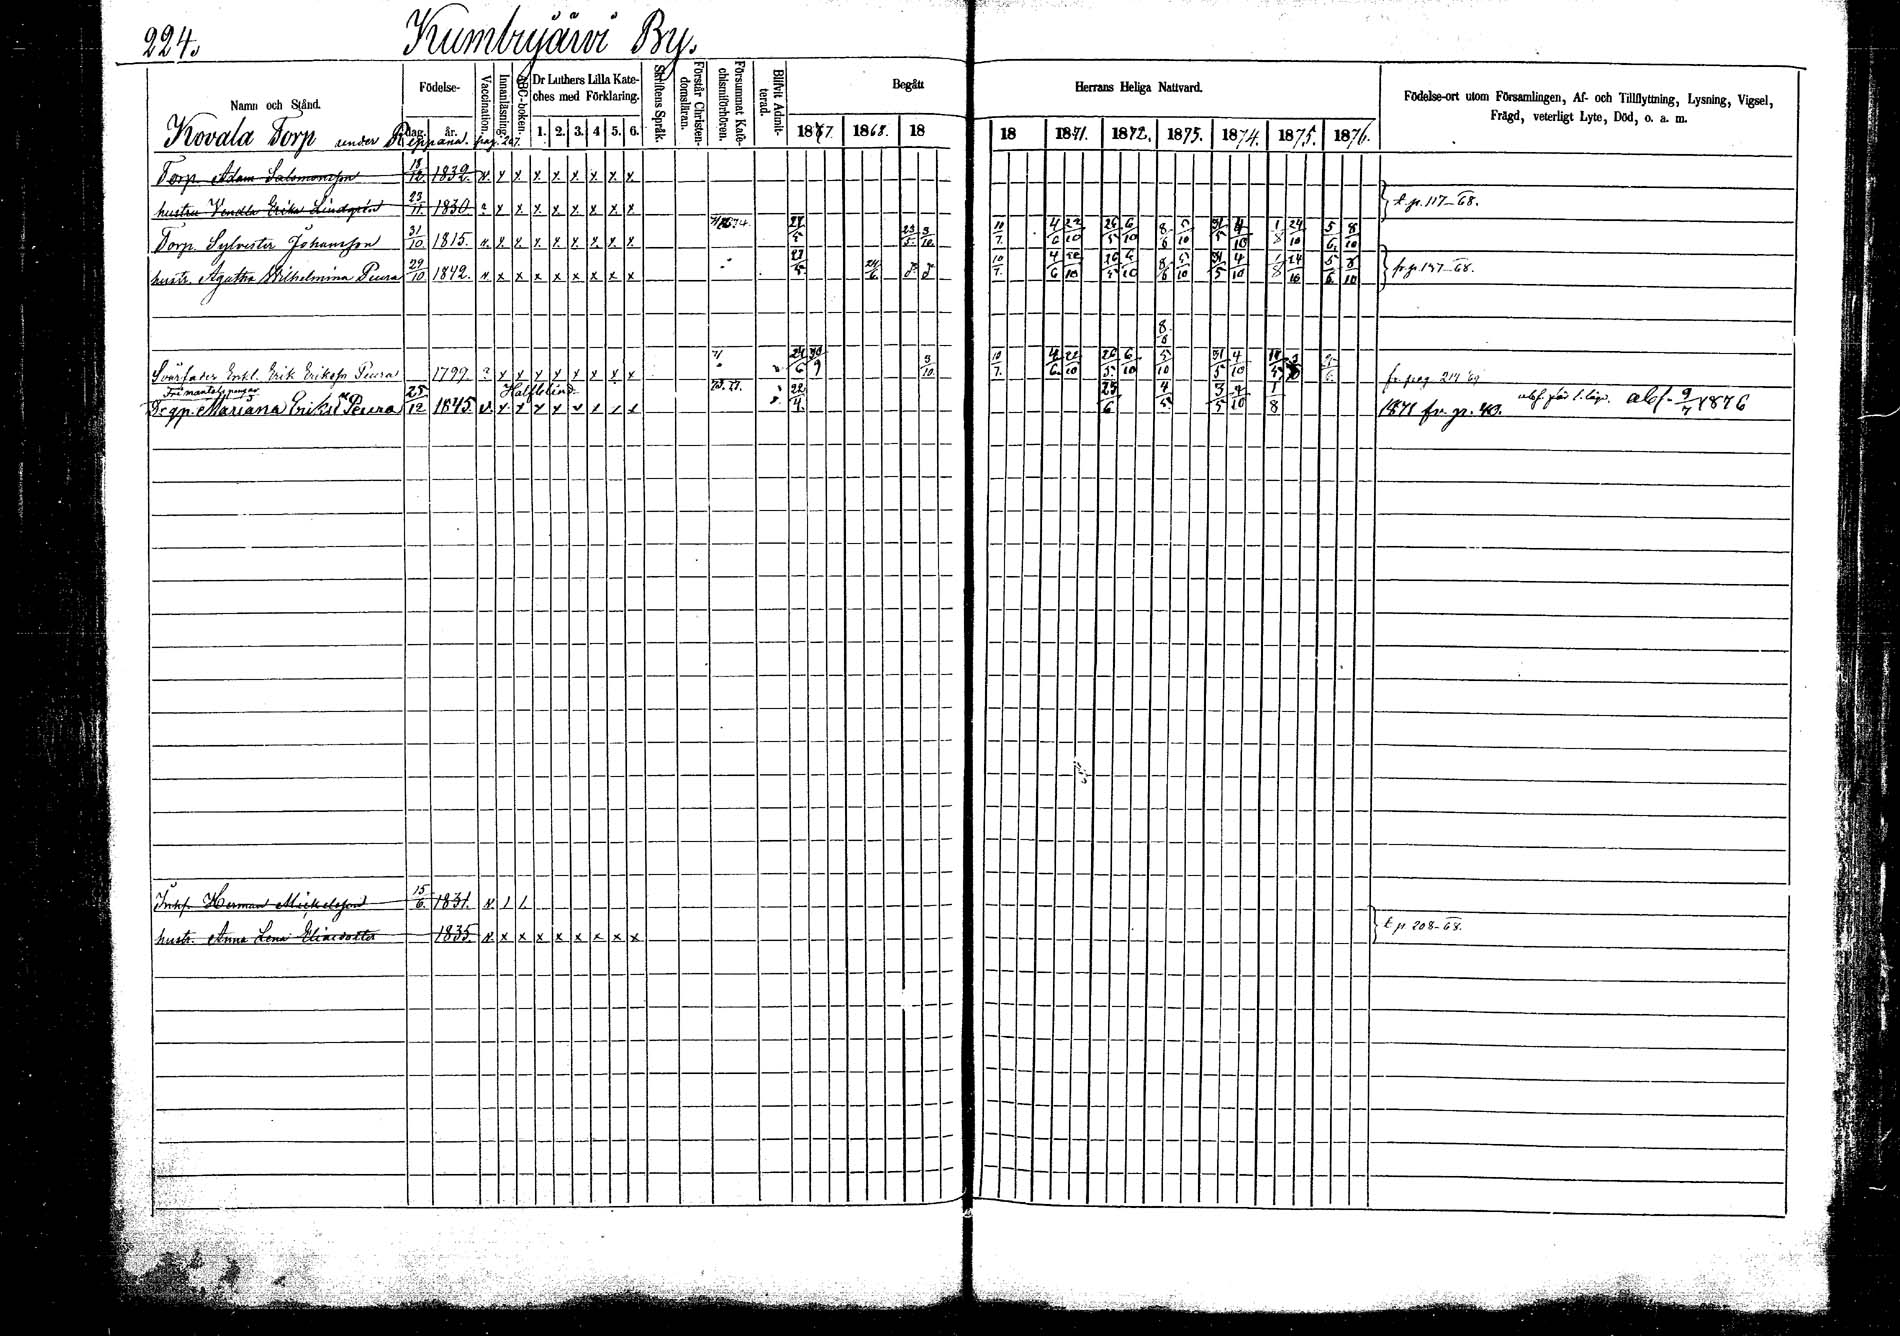 224.
Kumbujärvi By.
Namn och Stånd.
Födelse-
dag.
år.
Vaccination.
Innanläsning.
ABC-boken.
Dr Luthers Lilla Kate-
ches med Förklaring.
1. 2. 3. 4 5. 6.
Skriftens Språk.
Förstår Christen-
domsläran.
Försummat Kate-
chismiförhören.
Blifvit Admit-
terad.
Begått
1867. 1868. 18
Herrans Heliga Nattvard.
18 1871. 1872. 1873. 1874. 1875. 1876.
Födelse-ort utom Församlingen, Af- och Tillflyttning, Lysning, Vigsel,
Frägd, veterligt Lyte, Död, o. a. m.
Kovala Torp under Reppana. pag. 247.
Torp. Adam Salomonsson 18/12. 1832. v. x x x x x x x x
hustru Vendla Erika Lindgrén 23/11. 1830 ? x x x x x x x x t. p. 117-68.
Torp. Sylvester Johansson 31/10 1815. v. x x x x x x x x 23/5. 3/10. 10/7. 4/6 22/10 26/5 6/10 8/6 5/10 31/5 4/10 1/8 24/10 5/6. 8/10
hustr. Agatha Wilhelmina Peura 29/10 1842. v x x x x x x x x 24/6. 10/7. 4/6 22/10 26/5 6/10 8/6 5/10 31/5 4/10 1/8 24/10 5/6 8/10 fr. p. 137-68.
Svärfader Enkl. Erik Eriksson Peura 1799. ? x x x x x x x x 24/6 30/9 3/10. 10/7. 4/6 22/10 26/5 6/10 8/6 5/10 31/5 4/10 fr. pag. 214
Fri mantalspengar
Halfblind
Mariana Eriksd Peura 25/12 1845. v. x x x x x x x x 22/4. 25/6 4/5 3/5 4/10 1/8 1871 fr. p. 40. abf. 9/7 1876
Inh. Herman Mickelsson 15/6. 1831. v. / /
hustr. Anna Lena Eliaedotter 1835. v. x x x x x x x x t p. 208-68.